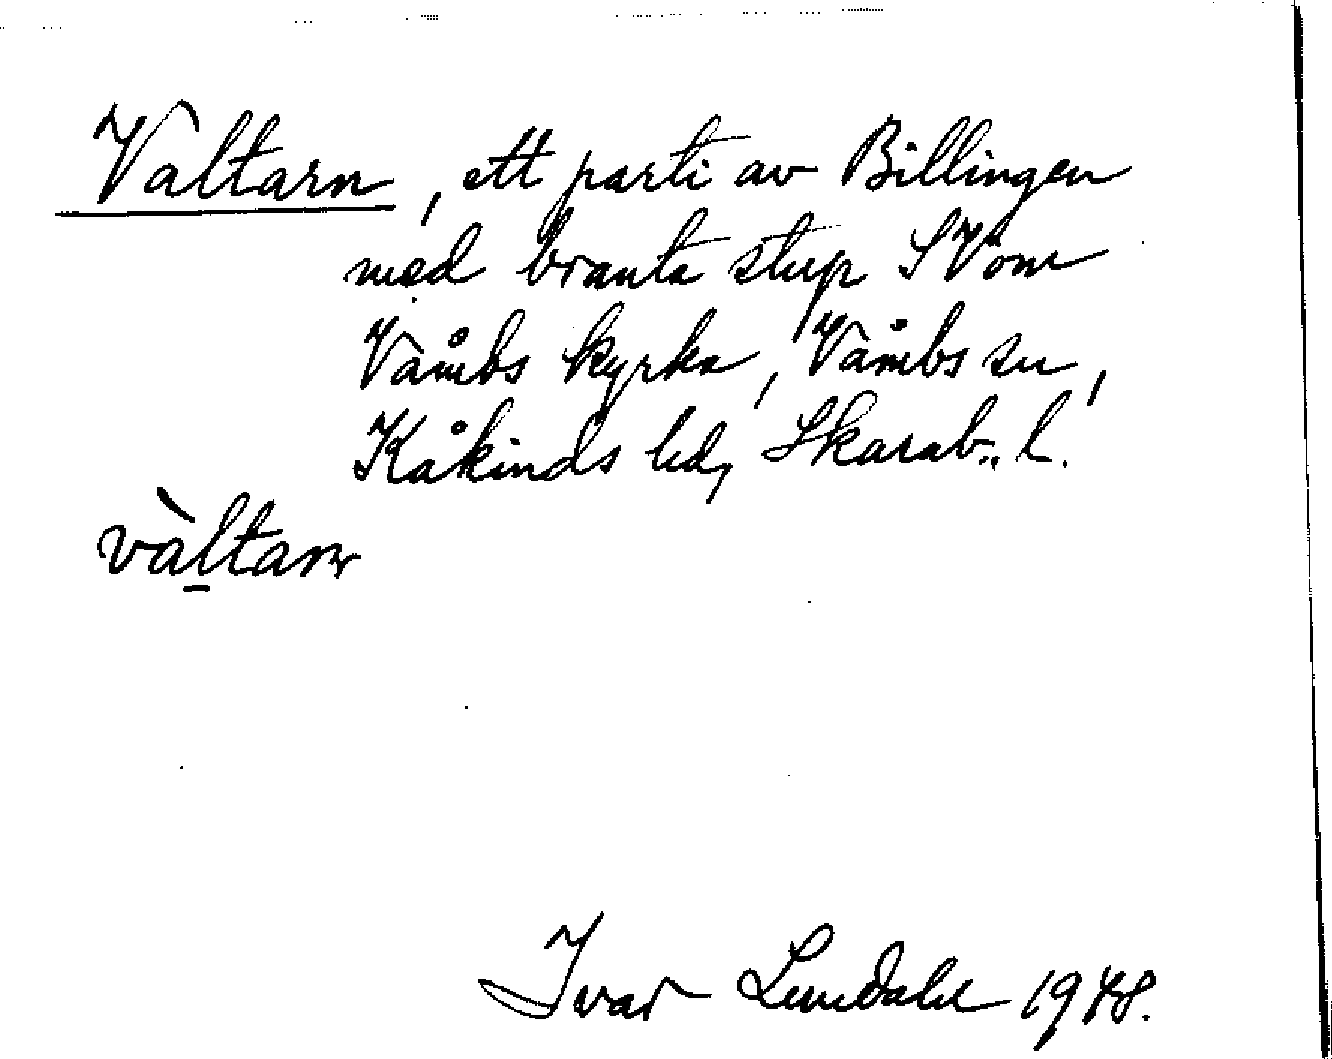 Valtarn, ett parti av Billingen
med branta stup SV om
Våmbs kyrka, Våmbs sn,
Kåkinds hd, Skarab. l.
vàltarn
Ivar Lundahl 1948.